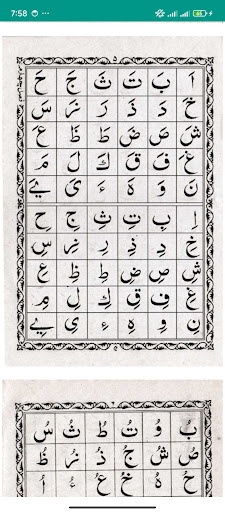 7:58
اَ بَ تَ ثَ جَ حَ
خَ دَ ذَ رَ زَ سَ
شَ صَ ضَ طَ ظَ عَ
غَ فَ قَ كَ لَ مَ
نَ وَ هَ ءَ یَ یَے
اِ بِ تِ ثِ جِ حِ
خِ دِ ذِ رِ زِ سِ
شِ صِ ضِ طِ ظِ عِ
غِ فِ قِ كِ لِ مِ
نِ وِ هِ ءِ یِ یِے
بُ وُ تُ طُ ثُ سُ
صُ شُ جُ ذُ زُ ظُ
حُ هُ خُ عُ ءُ اُ